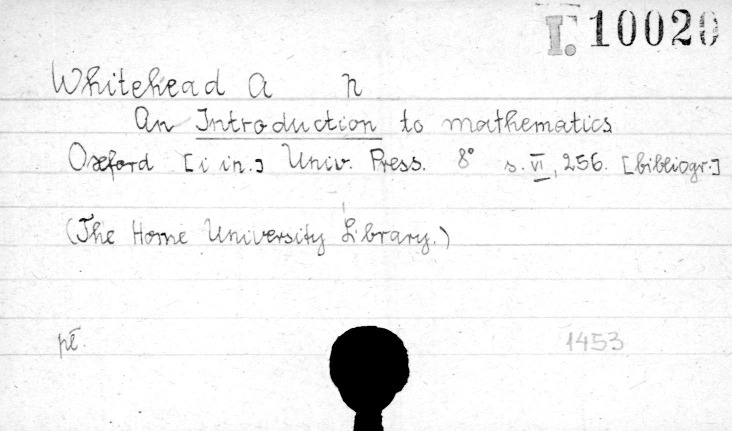 I. 10020
Whitehead A n
An Introduction to mathematics
Oxford [i in.] Univ. Press. 8° s. VI, 256. [bibliogr.]
(The Home University Library.)
pł.
1453